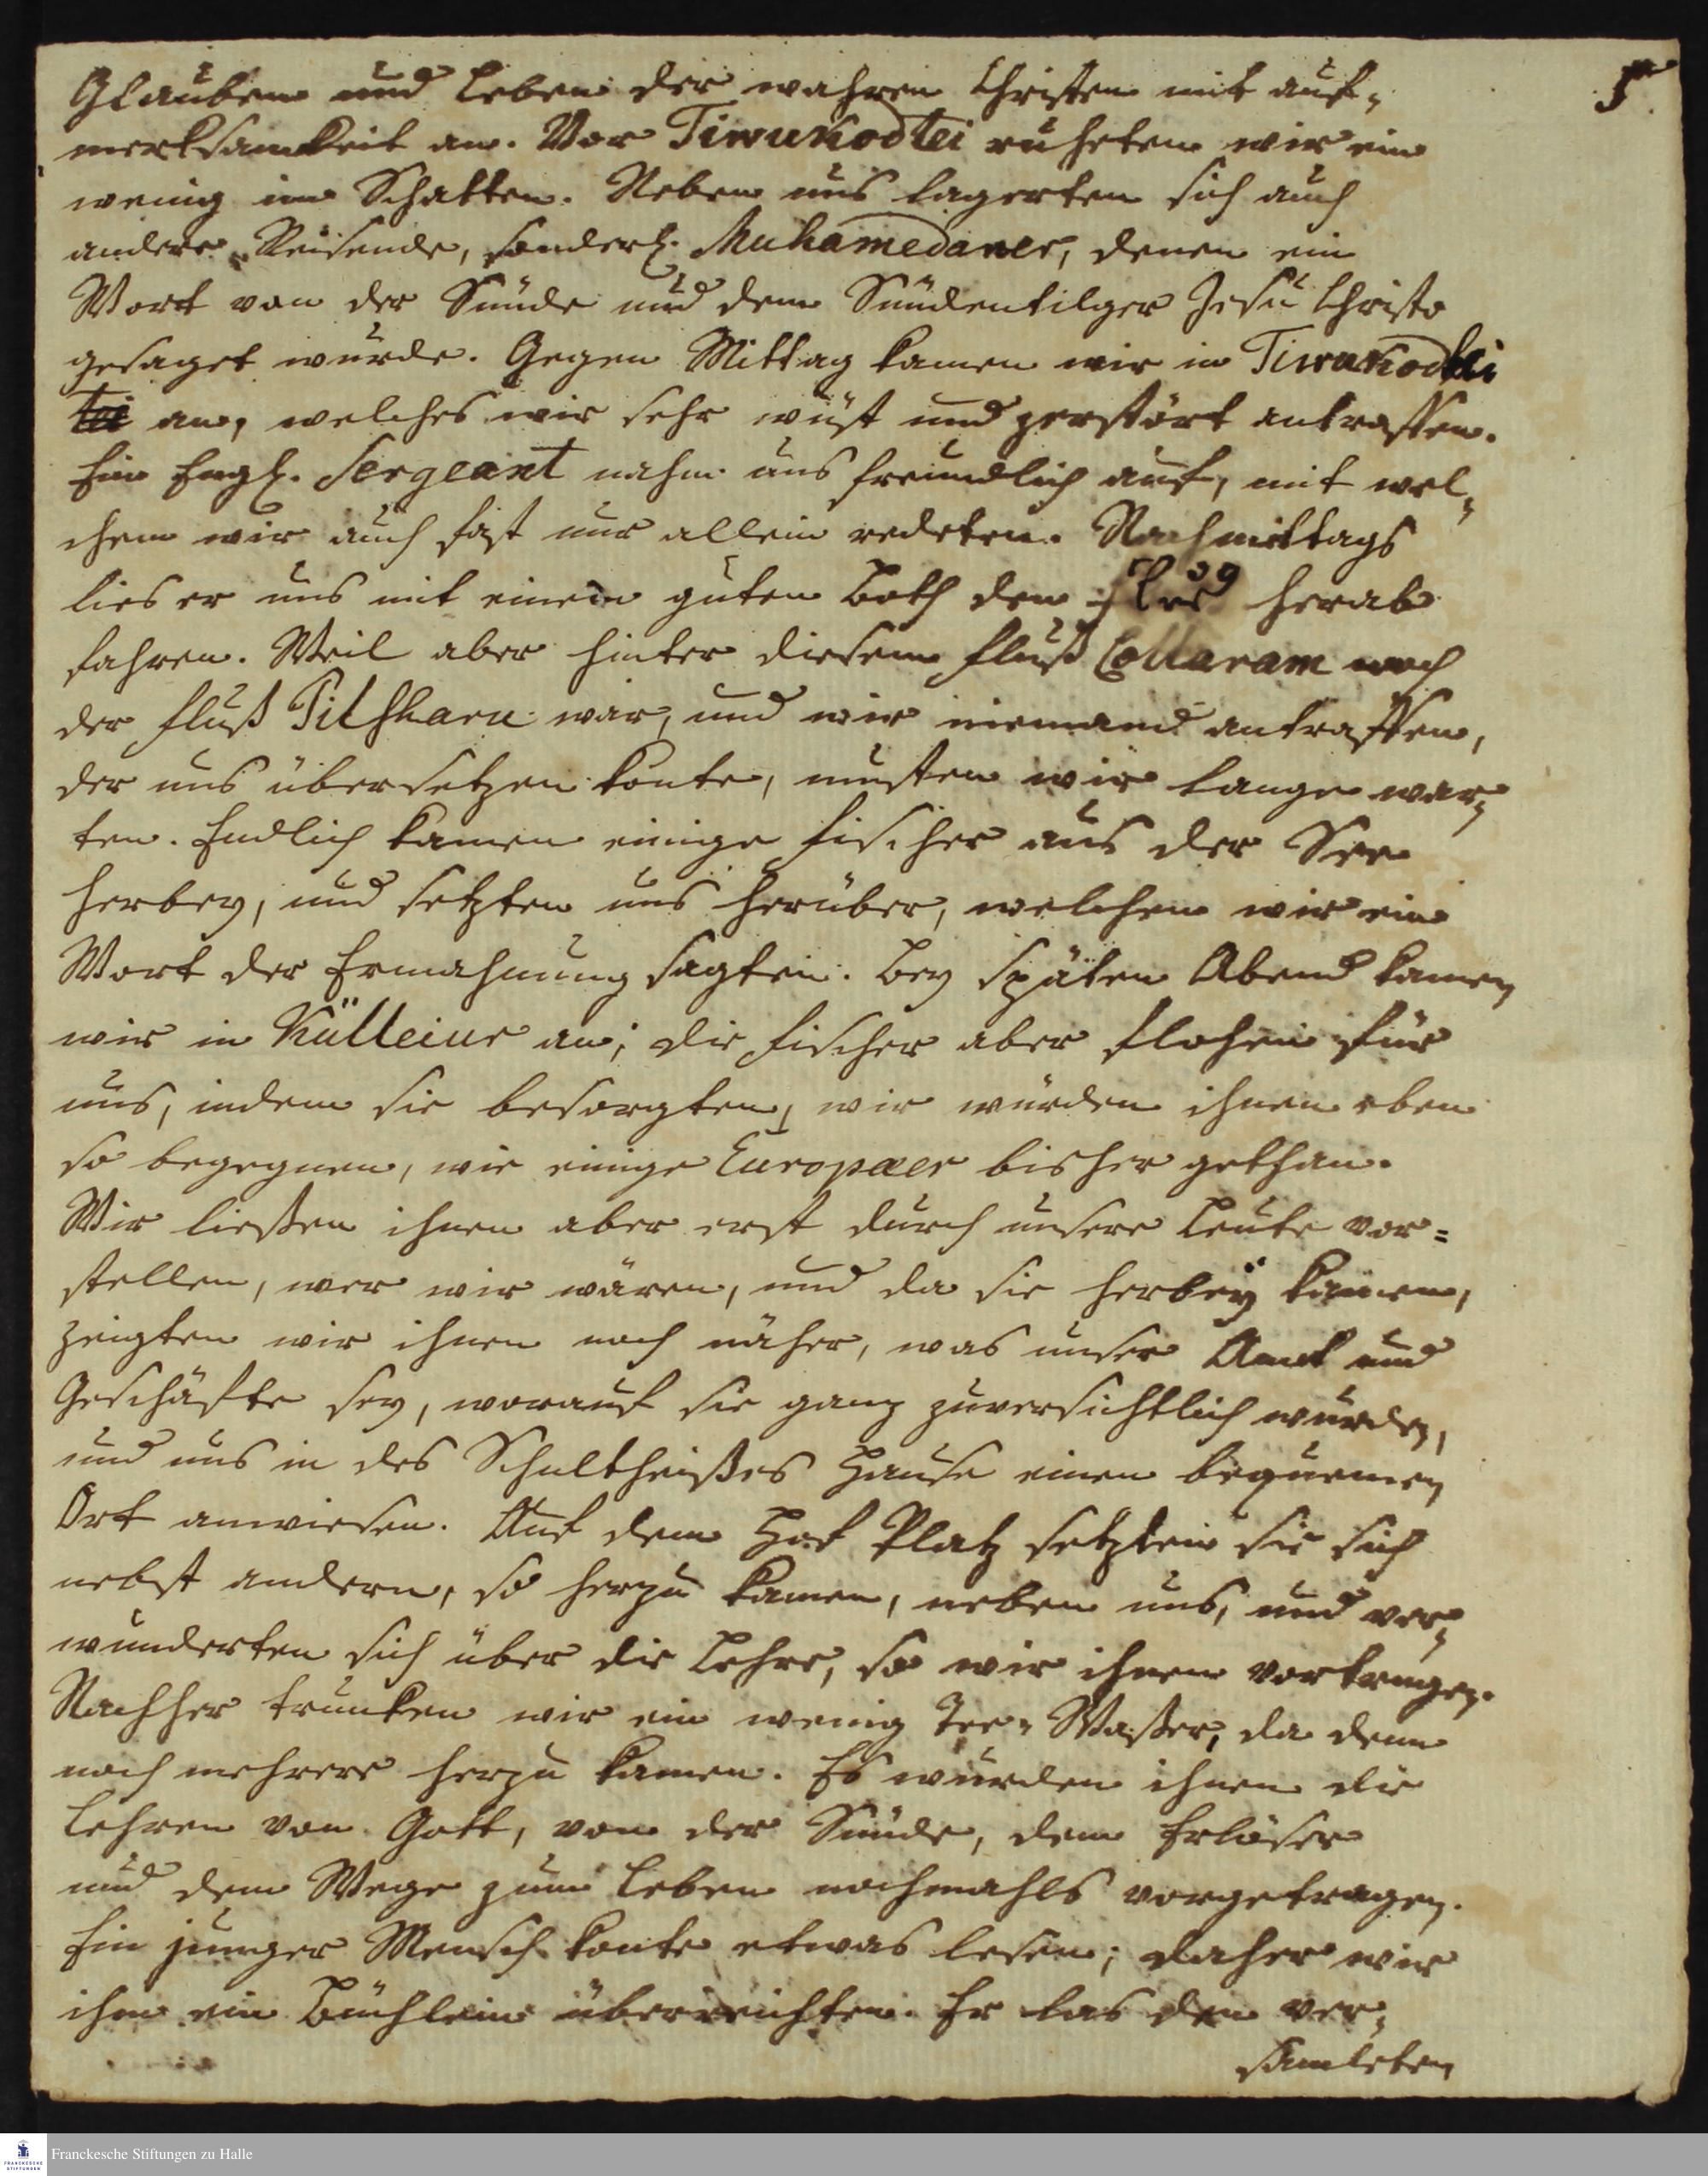 5.
Glauben und Leben der wahren Christen mit auf-
merksamkeit an. Vor Tirukodtei ruheten wir ein
wenig im Schatten. Neben uns lagerten sich auch
andere Reisende, sonderl. Muhamedaner, denen ein
Wort von der Sünde und dem Sündentilger Jesu Christo
gesaget wurde. Gegen Mittag kamen wir in Tirukodtei
tei an, welches wir sehr wüst und zerstört antraffen.
Ein Engl. Sergeant nahm uns freundlich auf, mit wel-
chem wir auch fast nur allein redeten. Nachmittags
lies er uns mit einem guten Both den Fluß herab
fahren. Weil aber hinter diesem Fluß Collaram noch
der Fluß Pitsharu war, und wir niemand antraffen,
der uns übersetzen konte, musten wir lange war-
ten. Endlich kamen einige Fischer aus der See
herbey, und setzten uns herüber, welchen wir ein
Wort der Ermahnung sagten. Bey späten Abend kamen
wir in Kulleiur an; die Fischer aber flohen für
uns, indem sie besorgten, wir würden ihnen eben
so begegnen, wie einige Europaeer bisher gethan.
Wir ließen ihnen aber erst durch unsere Leute vor=
stellen, wer wir wären, und da sie herbey kamen,
zeigten wir ihnen noch näher, was unser Amt und
Geschäfte sey, worauf sie ganz zuversichtlich wurden,
und uns in des Schultheißes Hause einen bequemen
Ort anwiesen. Auf dem Hof Platz setzten sie sich
nebst andern, so herzu kamen, neben uns, und ver-
wunderten sich über die Lehre, so wir ihnen vortrugen.
Nachher trunken wir ein wenig Tee-Waßer, da denn
noch mehrere herzu kamen. Es wurden ihnen die
Lehren von Gott, von der Sünde, dem Erlöser
und dem Wege zum Leben nochmahls vorgetragen.
Ein junger Mensch konte etwas lesen; daher wir
ihm ein Büchlein überreichten. Er las den ver-
samleten
Franckesche Stiftungen zu Halle